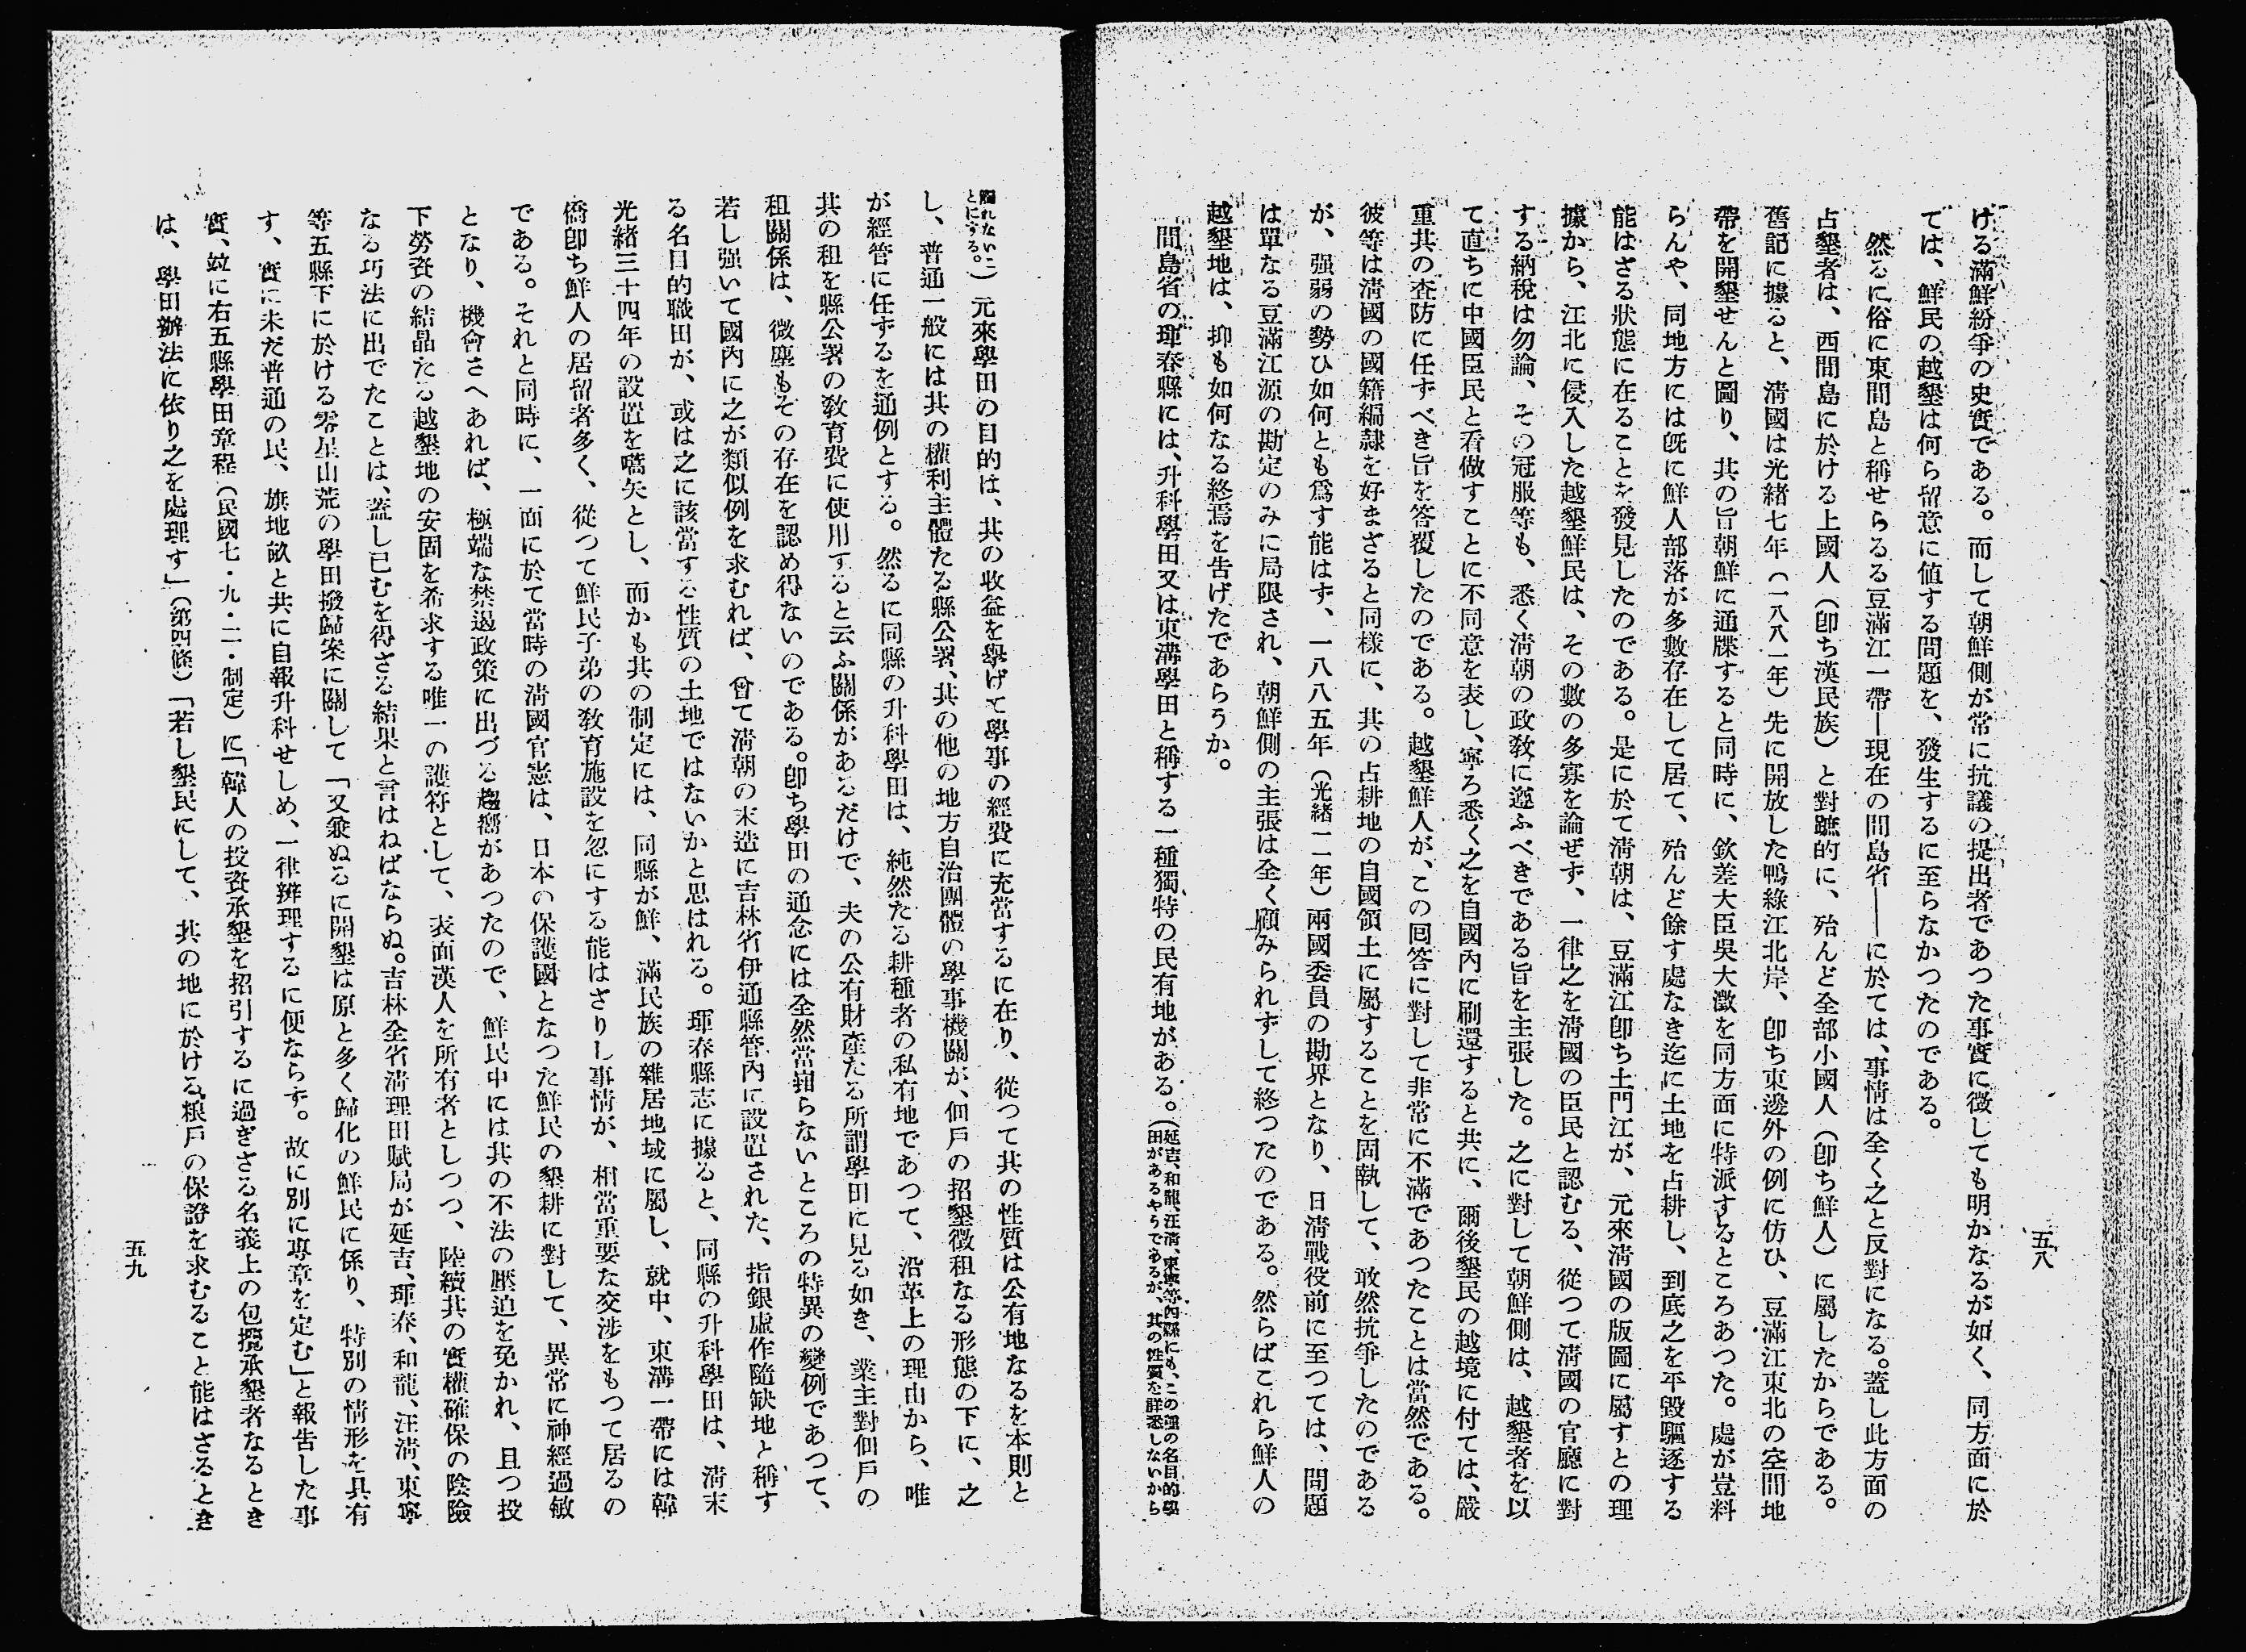 五八
ける滿鮮紛爭の史實である。而して朝鮮側が常に抗議の提出者であつた事實に徴しても明かなるが如く、同方面に於
ては、鮮民の越墾は何ら留意に値する問題を、發生するに至らなかつたのである。
然るに俗に東間島と稱せらるる豆滿江一帶―現在の間島省――に於ては、事情は全く之と反對になる。蓋し此方面の
占墾者は、西間島に於ける上國人（卽ち漢民族）と對蹠的に、殆んど全部小國人（卽ち鮮人）に屬したからである。
舊記に據ると、淸國は光緖七年（一八八一年）先に開放した鴨綠江北岸、卽ち東邊外の例に仿ひ、豆滿江東北の空閒地
帶を開墾せんと圖り、其の旨朝鮮に通牒すると同時に、欽差大臣吳大澂を同方面に特派するところあつた。處が豈料
らんや、同地方には旣に鮮人部落が多數存在して居て、殆んど餘す處なき迄に土地を占耕し、到底之を平毀驅逐する
能はざる狀態に在ることを發見したのである。是に於て淸朝は、豆滿江卽ち土門江が、元來淸國の版圖に屬すとの理
據から、江北に侵入した越墾鮮民は、その數の多寡を論ぜず、一律之を淸國の臣民と認むる、從つて淸國の官廳に對
する納稅は勿論、その冠服等も、悉く淸朝の政敎に遵ふべきである旨を主張した。之に對して朝鮮側は、越墾者を以
て直ちに中國臣民と看做すことに不同意を表し、寧ろ悉く之を自國內に刷還すると共に、爾後墾民の越境に付ては、嚴
重其の査防に任ずべき旨を答覆したのである。越墾鮮人が、この囘答に對して非常に不滿であつたことは當然である。
彼等は淸國の國籍編隷を好まざると同樣に、其の占耕地の自國領土に屬することを固執して、敢然抗爭したのである
が、强弱の勢ひ如何とも爲す能はず、一八八五年（光緖一一年）兩國委員の勘界となり、日淸戰役前に至つては、問題
は單なる豆滿江源の勘定のみに局限され、朝鮮側の主張は全く顧みられずして終つたのである。然らばこれら鮮人の
越墾地は、抑も如何なる終焉を告げたであらうか。
間島省の琿春縣には、升科學田又は東溝學田と稱する一種獨特の民有地がある。（延吉、和龍、汪淸、東寧等四縣にも、この種の名目的學
田があるやうであるが、其の性質を詳悉しないから
觸れないこ
とにする。）元來學田の目的は、其の收益を擧げて學事の經費に充當するに在り、從つて其の性質は公有地なるを本則と
し、普通一般には其の權利主體たる縣公署、其の他の地方自治團體の學事機關が、佃戶の招墾徵租なる形態の下に、之
が經管に任ずるを通例とする。然るに同縣の升科學田は、純然たる耕種者の私有地であつて、沿革上の理由から、唯
其の租を縣公署の敎育費に使用すると云ふ關係があるだけで、夫の公有財產たる所謂學田に見る如き、業主對佃戶の
租關係は、微塵もその存在を認め得ないのである。卽ち學田の通念には全然當箝らないところの特異の變例であつて、
若し强いて國內に之が類似例を求むれば、曾て淸朝の末造に吉林省伊通縣管內に設置された、指銀虛作隨缺地と稱す
る名目的職田が、或は之に該當する性質の土地ではないかと思はれる。琿春縣志に據ると、同縣の升科學田は、淸末
光緖三十四年の設置を嚆矢とし、而かも其の制定には、同縣が鮮、滿民族の雜居地域に屬し、就中、東溝一帶には韓
僑卽ち鮮人の居留者多く、從つて鮮民子弟の敎育施設を忽にする能はざりし事情が、相當重要な交渉をもつて居るの
である。それと同時に、一面に於て當時の淸國官憲は、日本の保護國となつた鮮民の墾耕に對して、異常に神經過敏
となり、機會さへあれば、極端な禁遏政策に出づる趨嚮があつたので、鮮民中には其の不法の壓迫を免かれ、且つ投
下勞資の結晶たる越墾地の安固を希求する唯一の護符として、表面漢人を所有者としつつ、陸續其の實權確保の陰險
なる巧法に出でたことは、蓋し已むを得ざる結果と言はねばならぬ。吉林全省淸理田賦局が延吉、琿春、和龍、汪淸、東寧
等五縣下に於ける零星山荒の學田撥歸案に關して「又彙ぬるに開墾は原と多く歸化の鮮民に係り、特別の情形を具有
す、實に未だ普通の民、旗地畝と共に自報升科せしめ、一律辨理するに便ならず。故に別に專章を定む」と報吿した事
實、竝に右五縣學田章程（民國七・九・二・制定）に「韓人の投資承墾を招引するに過ぎざる名義上の包攬承墾者なるとき
は、學田辦法に依り之を處理す」（第四條）「若し墾民にして、其の地に於ける糧戶の保證を求むること能はざるとき
五九